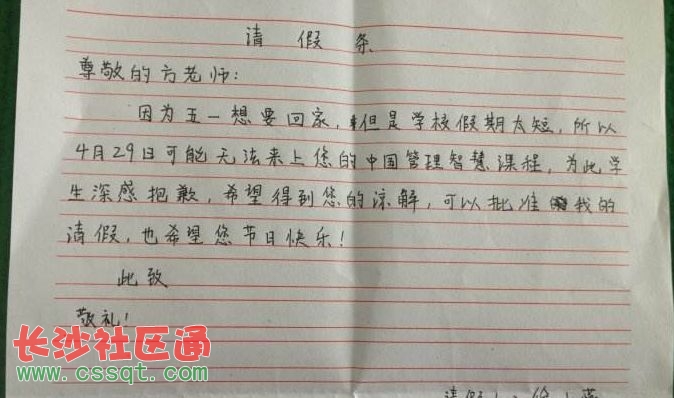 请假条
尊敬的方老师:
因为五一想要回家,但是学校假期太短,所以
4月29日可能无法来上您的中国管理智慧课程,为此学
生深感抱歉,希望得到您的谅解,可以批准我的
请假,也希望您节日快乐!
此致
敬礼!
长沙社区通
www.cssqt.com
请假人:徐